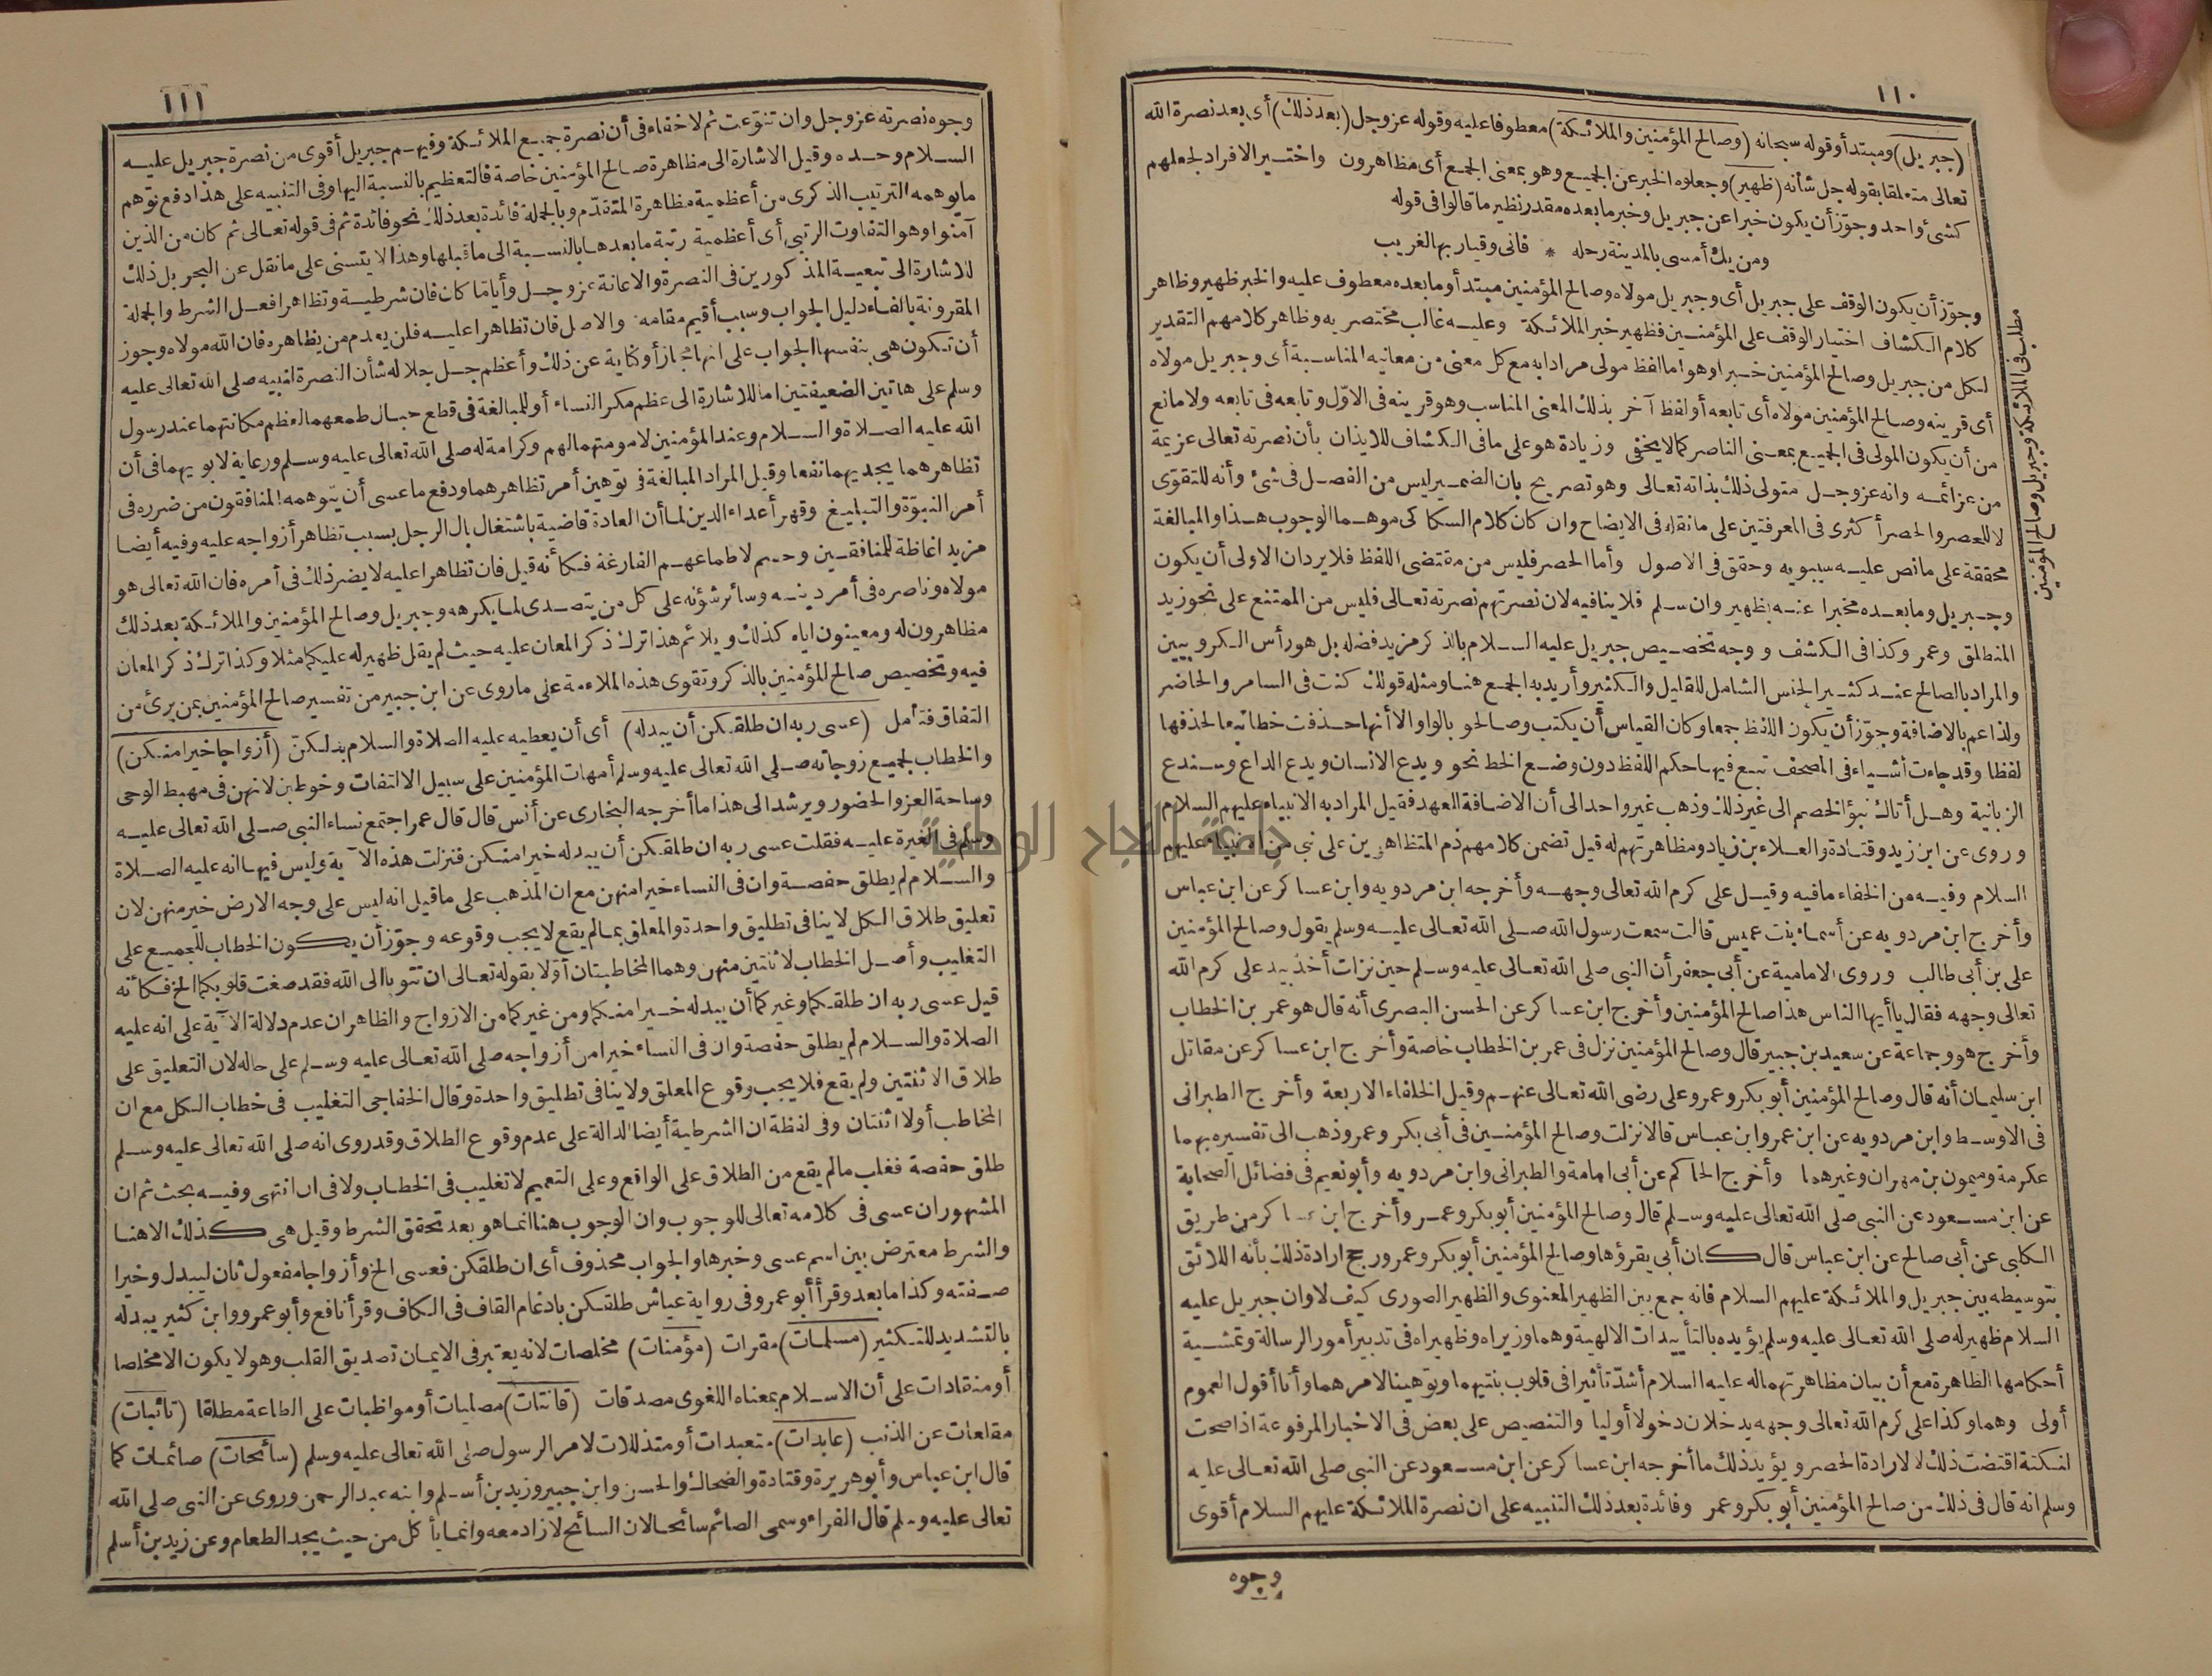 ١١٠
(جبريل) ومبتدأ وقوله سبحانه (وصالح المؤمنين والملائكة) معطوفا عليه وقوله عز وجل (بعد ذلك) أى بعد نصرة الله
تعالى متعلقا بقوله جل شأنه (ظهير) وجعلوه الخبر عن الجميع وهو بمعنى الجمع أى مظاهرون واختير الافراد لجعلهم
كشئ واحد وجوّز أن يكون خبرا عن جبريل وخبر ما بعده مقدر نظير ما قالوا فى قوله
ومن يك أمسى بالمدينة رحله * فانى وقيار بها لغريب
وجوّز أن يكون الوقف على جبريل أى وجبريل مولاه وصالح المؤمنين مبتدأ وما بعده معطوف عليه والخبر ظهير وظاهر
كلام الكشاف اختيار الوقف على المؤمنين فظهير خبر الملائكة وعليه غالب مختصريه وظاهر كلامهم التقدير
لكل من جبريل وصالح المؤمنين خبرا وهو اما لفظ مولى مرادا به مع كل معنى من معانيه المناسبة أى وجبريل مولاه
أى قرينه وصالح المؤمنين مولاه أى تابعه أو لفظ آخر بذلك المعنى المناسب وهو قرينه فى الاوّل وتابعه فى تابعه ولا مانع
من أن يكون المولى فى الجميع بمعنى الناصر كما لا يخفى وزيادة هو على ما فى الكشاف للايذان بأن نصرته تعالى عزيمة
من عزائمه وانه عز وجل متولى ذلك بذاته تعالى وهو تصريح بان الضمير ليس من الفصل فى شئ وأنه للتقوى
لا للحصر والحصر أكثرى فى المعرفتين على ما نقله فى الايضاح وان كان كلام السكاكى موهما الوجوب هذا والمبالغة
محققة على ما نص عليه سيبويه وحقق فى الاصول وأما الحصر فليس من مقتضى اللفظ فلا يرد ان الاولى أن يكون
وجبريل وما بعده مخبرا عنه بظهير وان سلم فلا ينافيه لان نصرتهم نصرته تعالى فليس من الممتنع على نحو زيد
المنطلق وعمرو كذا فى الكشف ووجه تخصيص جبريل عليه السلام بالذكر مزيد فضله بل هو رأس الكروبيين
والمراد بالصالح عند كثير الجنس الشامل للقليل والكثير وأريد به الجمع هنا ومثله قولك كنت فى السامر والحاضر
ولذا عم بالاضافة وجوّز أن يكون اللفظ جمعا وكان القياس أن يكتب وصالحو بالواو الا أنها حذفت خطا تبعا لحذفها
لفظا وقد جاءت أشياء فى المصحف تبع فيها حكم اللفظ دون وضع الخط نحو ويدع الانسان ويدع الداع وسندع
الزبانية وهل أتاك نبؤ الخصم الى غير ذلك وذهب غير واحد الى أن الاضافة للعهد فقيل المراد به الانبياء عليهم السلام
وروى عن ابن زيد وقتادة والعلاء بن زياد ومظاهرتهم له قيل تضمن كلامهم ذم المتظاهرين على نبى من الانبياء عليهم
السلام وفيه من الخفاء ما فيه وقيل على كرم الله تعالى وجهه وأخرجه ابن مردويه وابن عساكر عن ابن عباس
وأخرج ابن مردويه عن أسماء بنت عميس قالت سمعت رسول الله صلى الله تعالى عليه وسلم يقول وصالح المؤمنين
على بن أبى طالب وروى الامامية عن أبى جعفر أن النبى صلى الله تعالى عليه وسلم حين نزلت أخذ بيد على كرم الله
تعالى وجهه فقال يا أيها الناس هذا صالح المؤمنين وأخرج ابن عساكر عن الحسن البصرى أنه قال هو عمر بن الخطاب
وأخرج هو وجماعة عن سعيد بن جبير قال وصالح المؤمنين نزل فى عمر بن الخطاب خاصة وأخرج ابن عساكر عن مقاتل
ابن سليمان أنه قال وصالح المؤمنين أبو بكر وعمر وعلى رضى الله تعالى عنهم وقيل الخلفاء الاربعة وأخرج الطبرانى
فى الاوسط وابن مردويه عن ابن عمر وابن عباس قالا نزلت وصالح المؤمنين فى أبى بكر وعمر وذهب الى تفسيره بهما
عكرمة وميمون بن مهران وغيرهما وأخرج الحاكم عن أبى امامة والطبرانى وابن مردويه وأبو نعيم فى فضائل الصحابة
عن ابن مسعود عن النبى صلى الله تعالى عليه وسلم قال وصالح المؤمنين أبو بكر وعمر وأخرج ابن عساكر من طريق
الكلبى عن أبى صالح عن ابن عباس قال كان أبى يقرؤها وصالح المؤمنين أبو بكر وعمر ورجح ارادة ذلك بأنه اللائق
بتوسيطه بين جبريل والملائكة عليهم السلام فانه جمع بين الظهير المعنوى والظهير الصورى كيف لا وان جبريل عليه
السلام ظهير له صلى الله تعالى عليه وسلم يؤيده بالتأييدات الالهية وهما وزيراه وظهيراه فى تدبير أمور الرسالة وتمشية
أحكامها الظاهرة مع أن بيان مظاهرتهما له عليه السلام أشدّ تأثيرا فى قلوب بنتيهما وتوهينا لامرهما وأنا أقول العموم
أولى وهما وكذا على كرم الله تعالى وجهه يدخلان دخولا أوليا والتنصيص على بعض فى الاخبار المرفوعة اذا صحت
لنكتة اقتضت ذلك لا لارادة الحصر ويؤيد ذلك ما أخرجه ابن عساكر عن ابن مسعود عن النبى صلى الله تعالى عليه
وسلم انه قال فى ذلك من صالح المؤمنين أبو بكر وعمر وفائدة بعد ذلك التنبيه على ان نصرة الملائكة عليهم السلام أقوى
وجوه
مطلب فى الملائكة وجبريل وصالح المؤمنين
١١١
وجوه نصرته عز وجل وان تنوّعت ثم لا خفاء فى أن نصرة جميع الملائكة وفيهم جبريل أقوى من نصرة جبريل عليه
السلام وحده وقيل الاشارة الى مظاهرة صالح المؤمنين خاصة فالتعظيم بالنسبة اليها وفى التنبيه على هذا دفع توهم
ما يوهمه الترتيب الذكرى من أعظمية مظاهرة المتقدّم وبالجملة فائدة بعد ذلك نحو فائدة ثم فى قوله تعالى ثم كان من الذين
آمنوا وهو التفاوت الرتبى أى أعظمية رتبة ما بعدها بالنسبة الى ما قبلها وهذا لا يتسنى على ما نقل عن البحر بل ذلك
للاشارة الى تبعية المذكورين فى النصرة والاعانة عز وجل وأيا ما كان فان شرطية وتظاهرا فعل الشرط والجملة
المقرونة بالفاء دليل الجواب وسبب أقيم مقامه والاصل فان تظاهرا عليه فلن يعدم من يظاهره فان الله مولاه وجوز
أن تكون هى بنفسها الجواب على انها مجاز أو كناية عن ذلك وأعظم جل جلاله شأن النصرة لنبيه صلى الله تعالى عليه
وسلم على هاتين الضعيفتين اما للاشارة الى عظم مكر النساء أو للمبالغة فى قطع حبال طمعهما لعظم مكانتهما عند رسول
الله عليه الصلاة والسلام وعند المؤمنين لامومتهما لهم وكرامة له صلى الله تعالى عليه وسلم ورعاية لابويهما فى أن
تظاهرهما يجديهما نفعا وقيل المراد المبالغة فى توهين أمر تظاهرهما ودفع ما عسى أن يتوهمه المنافقون من ضرره فى
أمر النبوّة والتبليغ وقهر أعداء الدين لما أن العادة قاضية باشتغال بال الرجل بسبب تظاهر أزواجه عليه وفيه أيضا
مزيد اغاظة للمنافقين وحسم لاطماعهم الفارغة فكأنه قيل فان تظاهرا عليه لا يضر ذلك فى أمره فان الله تعالى هو
مولاه وناصره فى أمر دينه وسائر شؤنه على كل من يتصدى لما يكرهه وجبريل وصالح المؤمنين والملائكة بعد ذلك
مظاهرون له ومعينون اياه كذلك ويلائم هذا ترك ذكر المعان عليه حيث لم يقل ظهير له عليكما مثلا وكذا ترك ذكر المعان
فيه وتخصيص صالح المؤمنين بالذكر وتقوى هذه الملاءمة على ما روى عن ابن جبير من تفسير صالح المؤمنين بمن برئ من
النفاق فتأمل (عسى ربه ان طلقكن أن يبدله) أى أن يعطيه عليه الصلاة والسلام بدلكنّ (أزواجا خيرا منكن)
والخطاب لجميع زوجاته صلى الله تعالى عليه وسلم أمهات المؤمنين على سبيل الالتفات وخوطبن لانهن فى مهبط الوحى
وساحة العز والحضور ويرشد الى هذا ما أخرجه البخارى عن أنس قال قال عمر اجتمع نساء النبى صلى الله تعالى عليه
وسلم فى الغيرة عليه فقلت عسى ربه ان طلقكن أن يبدله خيرا منكن فنزلت هذه الآية وليس فيها انه عليه الصلاة
والسلام لم يطلق حفصة وان فى النساء خيرا منهن مع ان المذهب على ما قيل انه ليس على وجه الارض خير منهن لان
تعليق طلاق الكل لا ينافى تطليق واحدة والمعلق بما لم يقع لا يجب وقوعه وجوّز أن يكون الخطاب للجميع على
التغليب وأصل الخطاب لاثنتين منهن وهما المخاطبتان أوّلا بقوله تعالى ان تتوبا الى الله فقد صغت قلوبكما الخ فكأنه
قيل عسى ربه ان طلقكما وغيركما أن يبدله خيرا منكما ومن غيركما من الازواج والظاهر ان عدم دلالة الآية على انه عليه
الصلاة والسلام لم يطلق حفصة وان فى النساء خيرا من أزواجه صلى الله تعالى عليه وسلم على حاله لان التعليق على
طلاق الاثنتين ولم يقع فلا يجب وقوع المعلق ولا ينافى تطليق واحدة وقال الخفاجى التغليب فى خطاب الكل مع ان
المخاطب أولا اثنتان وفى لفظة ان الشرطية أيضا الدالة على عدم وقوع الطلاق وقد روى انه صلى الله تعالى عليه وسلم
طلق حفصة فغلب ما لم يقع من الطلاق على الواقع وعلى التعميم لا تغليب فى الخطاب ولا فى ان انتهى وفيه بحث ثم ان
المشهور ان عسى فى كلامه تعالى للوجوب وان الوجوب هنا انما هو بعد تحقق الشرط وقيل هى كذلك الا هنا
والشرط معترض بين اسم عسى وخبرها والجواب محذوف أى ان طلقكن فعسى الخ وأزواجا مفعول ثان ليبدل وخيرا
صفته وكذا ما بعد وقرأ أبو عمرو فى رواية عياش طلقكن بادغام القاف فى الكاف وقرأ نافع وأبو عمرو وابن كثير يبدله
بالتشديد للتكثير (مسلمات) مقرات (مؤمنات) مخلصات لانه يعتبر فى الايمان تصديق القلب وهو لا يكون الا مخلصا
أو منقادات على أن الاسلام بمعناه اللغوى مصدقات (قانتات) مصليات أو مواظبات على الطاعة مطلقا (تائبات)
مقلعات عن الذنب (عابدات) متعبدات أو متذللات لامر الرسول صلى الله تعالى عليه وسلم (سائحات) صائمات كما
قال ابن عباس وأبو هريرة وقتادة والضحاك والحسن وابن جبير وزيد بن أسلم وابنه عبد الرحمن وروى عن النبى صلى الله
تعالى عليه وسلم قال الفراء وسمى الصائم سائحا لان السائح لا زاد معه وانما يأكل من حيث يجد الطعام وعن زيد بن أسلم
جامعة النجاح الوطنية